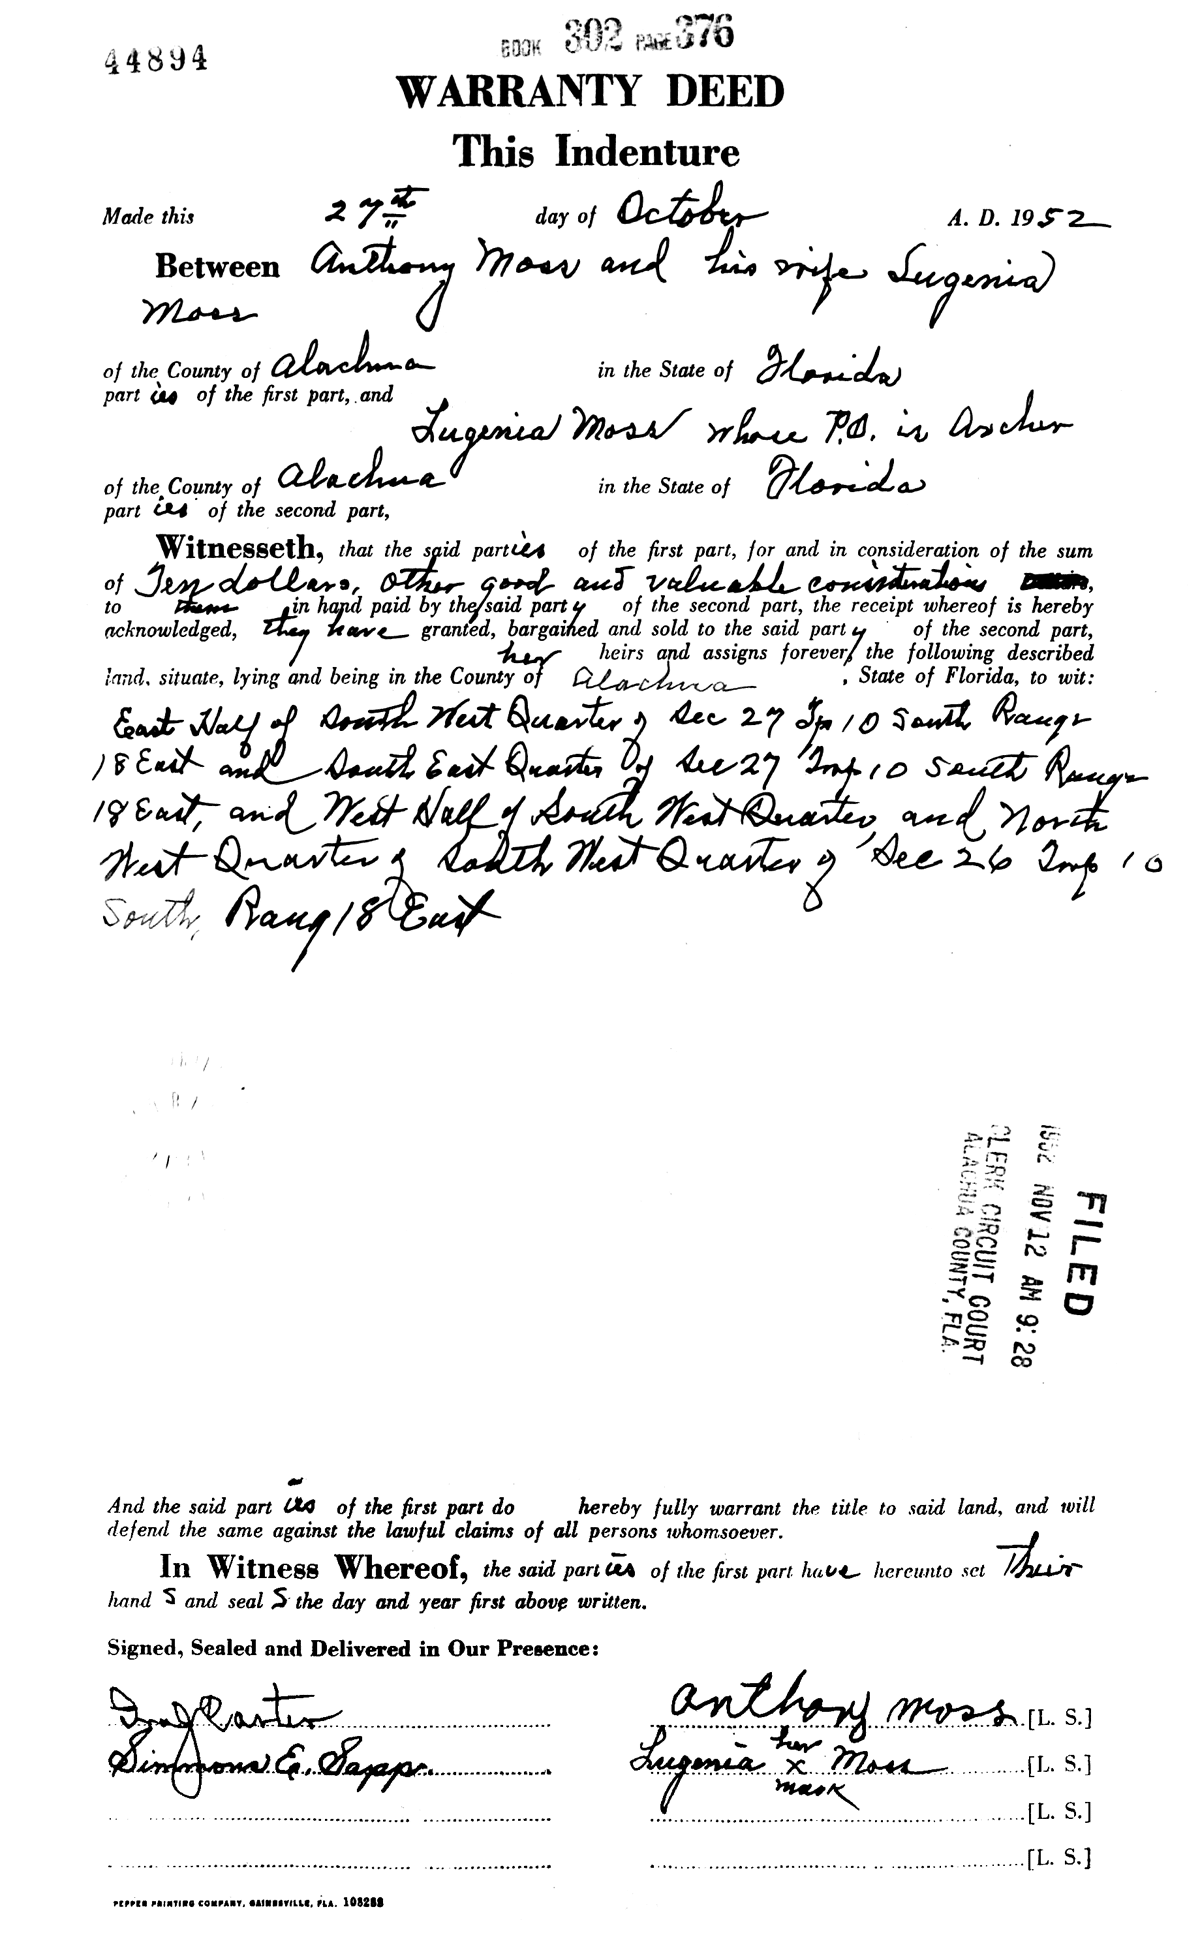 44894
BOOK 302 PAGE 376
WARRANTY DEED
This Indenture
Made this 27th day of October A. D. 1952
Between Anthony Moss and his wife Lugenia
Moss
of the County of Alachua in the State of Florida
part ies of the first part, and
Lugenia Moss whose P.O. is Archer
of the County of Alachua in the State of Florida
part ies of the second part,
Witnesseth, that the said parties of the first part, for and in consideration of the sum
of Ten dollars, other good and valuable considerations
to them in hand paid by the said party of the second part, the receipt whereof is hereby
acknowledged, they have granted, bargained and sold to the said party of the second part,
her heirs and assigns forever, the following described
land, situate, lying and being in the County of Alachua, State of Florida, to wit:
East Half of South West Quarter of Sec 27 Tp 10 South Range
18 East and South East Quarter of Sec 27 Twp 10 South Range
18 East, and West Half of South West Quarter, and North
West Quarter of South West Quarter of Sec 26 Twp 10
South, Rang 18 East
FILED
1952 NOV 12 AM 9:28
CLERK CIRCUIT COURT
ALACHUA COUNTY, FLA.
And the said part ies of the first part do hereby fully warrant the title to said land, and will
defend the same against the lawful claims of all persons whomsoever.
In Witness Whereof, the said parties of the first part have hereunto set Their
hand s and seal s the day and year first above written.
Signed, Sealed and Delivered in Our Presence:
Ira J Carter Anthony Moss [L. S.]
her
Simmons E. Sapp. Lugenia x Moss [L. S.]
mark
[L. S.]
[L. S.]
PEPPER PRINTING COMPANY, GAINESVILLE, FLA. 108288